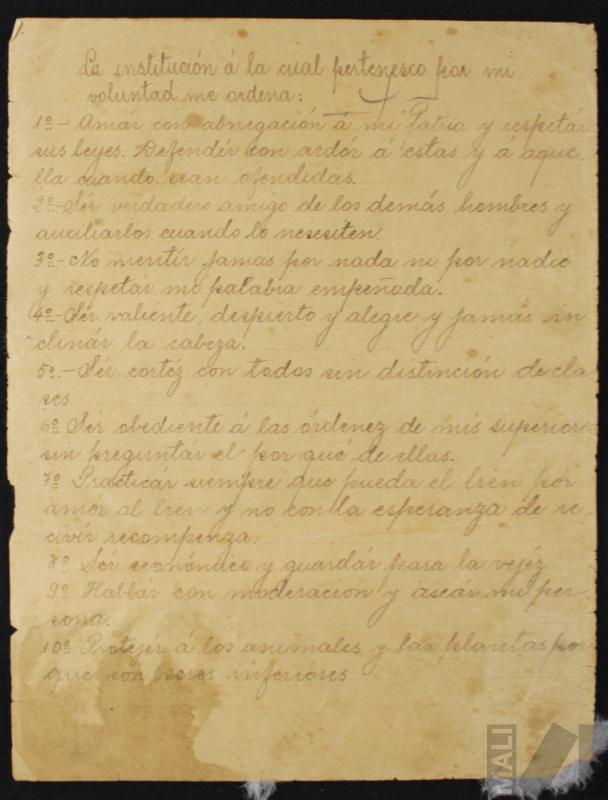 La institución á la cual pertenesco por mi
voluntad me ordena:
1º- Amár con abnegación á mi Patria y respetár
sus leyes. Defendér con ardor á estas y a aque-
lla cuando sean ofendidas.
2º- Sér verdadero amigo de los demás hombres y
auxiliarlos cuando lo nesesiten.
3º- No mentir jamas por nada ni por nadie
y respetár mi palabra empeñada.
4º- Sér valiente, despierto y alegre y jamás in
clinár la cabeza.
5º- Sér cortéz con todos sin distinción de cla-
ses
6º Sér obediente á las órdenez de mis superiores
sin preguntár el por qué de ellas.
7º Practicár siempre que pueda el bien por
amór al bien y no con la esperanza de re
civír recompenza.
8º Sér económico y guardár para la vejéz
9º Hablár con moderación y aseár mi per-
sona.
10º Protejér á los animales y las plantas por
que son seres inferiores
MALI